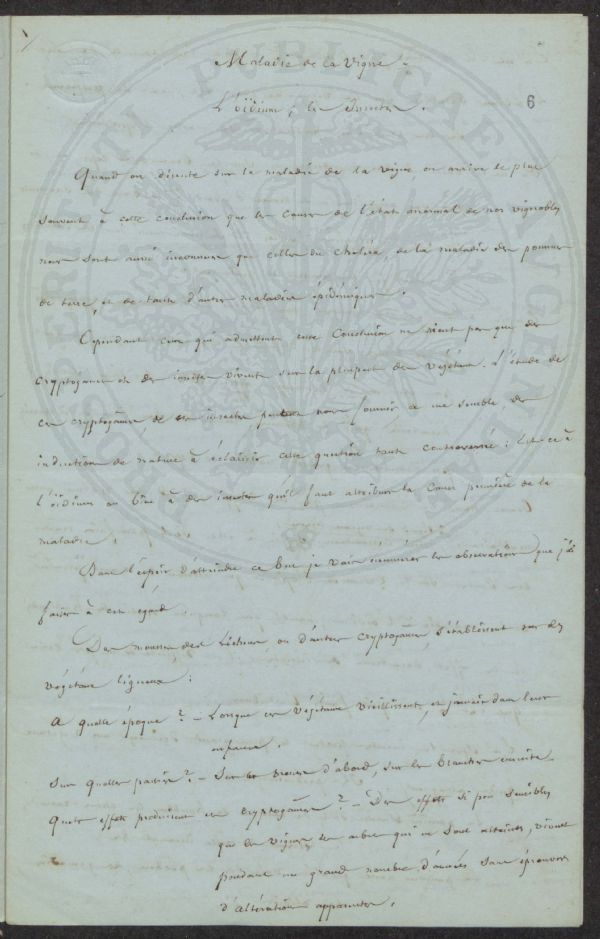 Maladie de la Vigne.
6
L'oïdium, les Insectes.
Quand on discute sur la maladie de la vigne on arrive le plus
souvent à cette conclusion que les causes de l'état anormal de nos vignobles
nous sont aussi inconnues que celles du choléra, de la maladie des pommes
de terre, et de toute d'autres maladies épidémiques.
Cependant ceux qui admettent cette conclusion ne nient pas que des
cryptogames et des insectes vivent sur la plupart des végétaux. L'étude de
ces cryptogames et de ces insectes peuvent nous fournir ce me semble, des
induction de nature à éclaircir cette question tant controversée : Est-ce à
l'oïdium ou bien à des insectes qu'il faut attribuer la cause première de la
maladie.
Dans l'espoir d'atteindre ce but je vais énumérer les observations que j'ai
faites à cet égard.
Des mousses des Lichens ou d'autres cryptogames, s'établissent sur des
végétaux ligneux :
A quelle époque ? - Lorsque ces végétaux vieillissent, et jamais dans leur
enfance.
Sur quelles parties ? - Sur le tronc d'abord, sur les branches ensuite.
Quels effets produisent ces cryptogames ? - Des effets si peu sensibles
que les vignes, les arbres qui en sont atteints, vivent
pendant un grand nombre d'années sans éprouver
d'altérations apparentes.
PROSPERITATI PUBLICAE AUGENDAE